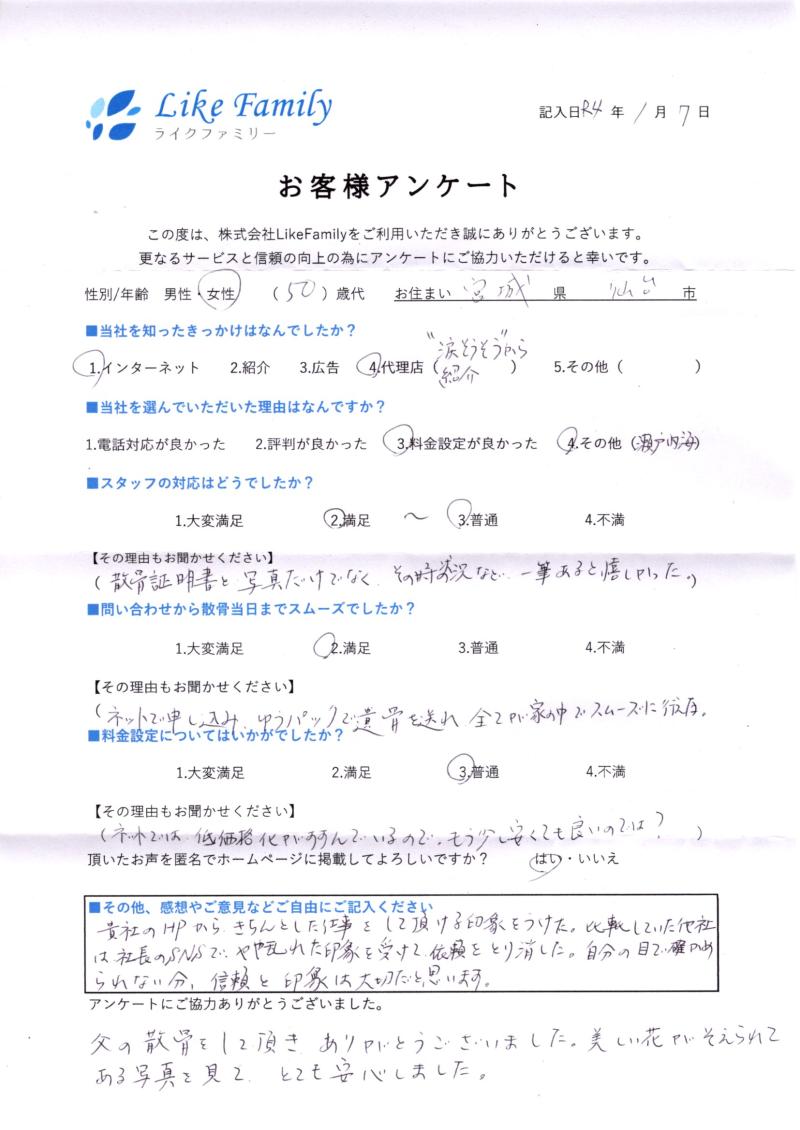 Like Family
ライクファミリー
記入日R4年 1月 7日
お客様アンケート
この度は、株式会社LikeFamilyをご利用いただき誠にありがとうございます。
更なるサービスと信頼の向上の為にアンケートにご協力いただけると幸いです。
性別/年齢 男性・女性 (50)歳代 お住まい 宮城 県 仙台 市
■当社を知ったきっかけはなんでしたか?
1.インターネット 2.紹介 3.広告 4.代理店("涙そうそう"から紹介) 5.その他( )
■当社を選んでいただいた理由はなんですか?
1.電話対応が良かった 2.評判が良かった 3.料金設定が良かった 4.その他(瀬戸内海)
■スタッフの対応はどうでしたか?
1.大変満足 2.満足 〜 3.普通 4.不満
【その理由もお聞かせください】
(散骨証明書と写真だけでなく、その時の状況など、一筆あると嬉しかった。)
■問い合わせから散骨当日までスムーズでしたか?
1.大変満足 2.満足 3.普通 4.不満
【その理由もお聞かせください】
(ネットで申し込み、ゆうパックで遺骨を送れ、全てが家の中でスムーズに
■料金設定についてはいかがでしたか?
1.大変満足 2.満足 3.普通 4.不満
【その理由もお聞かせください】
(ネットでは、低価格化がすすんでいるので、もう少し安くても良いのでは?)
頂いたお声を匿名でホームページに掲載してよろしいですか? はい・いいえ
■その他、感想やご意見などご自由にご記入ください
貴社のHPから、きちんとした仕事をして頂ける印象をうけた。比較していた他社
は社長のSNSで、やや乱れた印象を受けて依頼をとり消した。自分の目で確かめ
られない分、信頼と印象は大切だと思います。
アンケートにご協力ありがとうございました。
父の散骨をして頂き、ありがとうございました。美しい花がそえられて
ある写真を見て、とても安心しました。